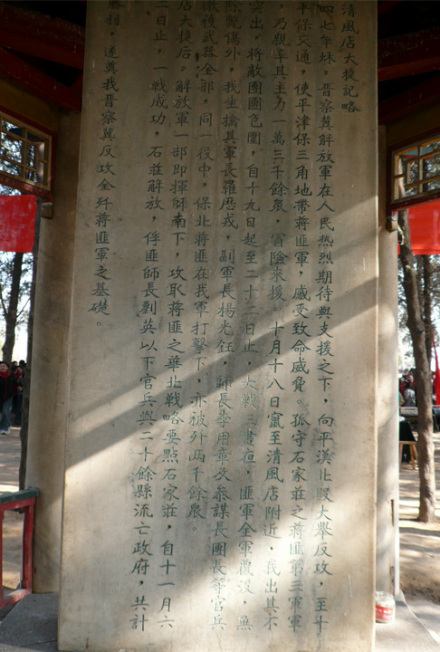 清風店大捷記略
四七年秋，晋察冀解放軍在人民热烈期待與支援之下，向平漢北段大舉反攻，至十
平保交通，使平津保三角地带蒋匪軍，感受致命威脅。孤守石家莊之蒋匪第三軍軍
，乃親率其主力一萬三千餘衆，冒險来援，十月十八日竄至清風店附近，我出其不
突出，将敵團團包圍，自十九日起至二十二日止，大戰三晝夜，匪軍全軍覆没，無
除斃傷外，我生擒其軍長羅歷戎，副軍長楊光鈺，師長李用章及叅謀長團長等官兵
繳獲武器全部，同一役中，保北蒋匪在我軍打擊下，亦被歼两千餘衆。
店大捷后，解放軍一部即揮師南下，攻取蒋匪之華北戰略要點石家莊，自十一月六
二日止，一戰成功，石莊解放，俘匪師長劉英以下官兵與二十餘縣流亡政府，共計
勝利，遂奠我晋察冀反攻全歼蒋匪軍之基礎。